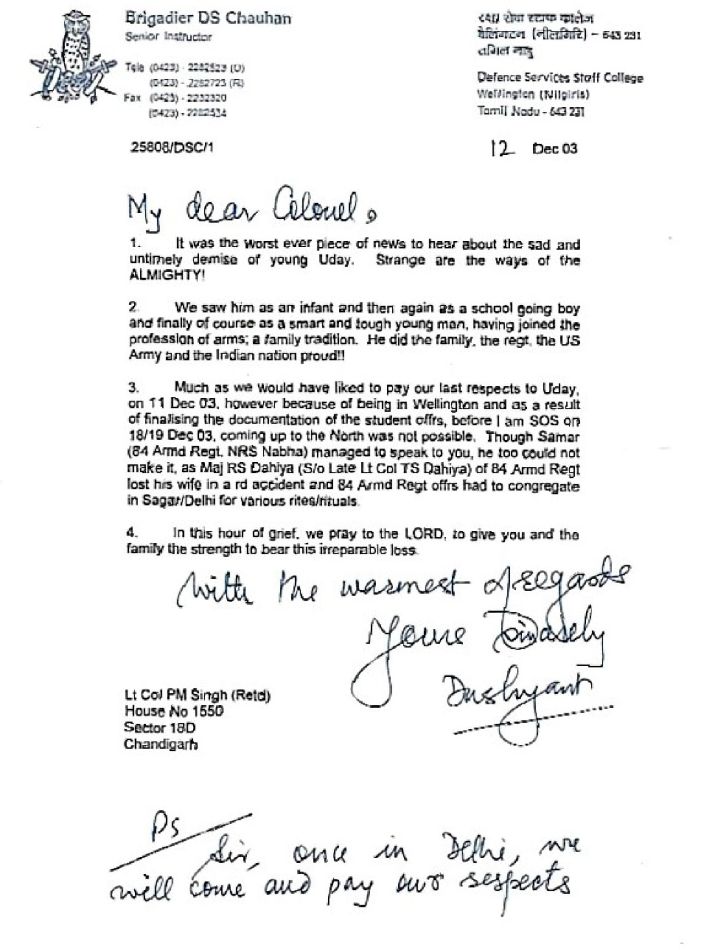 Brigadier DS Chauhan
Senior Instructor
Tele (0423) - 2282523 (O)
(0423) - 2282723 (R)
Fax (0423) - 2232320
(0423) - 2282534
रक्षा सेवा स्टाफ कालेज
वेलिंगटन (नीलगिरि) – 643 231
तमिल नाडु
Defence Services Staff College
Wellington (Nilgiris)
Tamil Nadu - 643 231
25808/DSC/1
12 Dec 03
My dear Colonel,
1. It was the worst ever piece of news to hear about the sad and
untimely demise of young Uday. Strange are the ways of the
ALMIGHTY!
2 We saw him as an infant and then again as a school going boy
and finally of course as a smart and tough young man, having joined the
profession of arms; a family tradition. He did the family, the regt, the US
Army and the Indian nation proud!!
3. Much as we would have liked to pay our last respects to Uday,
on 11 Dec 03, however because of being in Wellington and as a result
of finalising the documentation of the student offrs, before I am SOS on
18/19 Dec 03, coming up to the North was not possible. Though Samar
(84 Armd Regt, NRS Nabha) managed to speak to you, he too could not
make it, as Maj RS Dahiya (S/o Late Lt Col TS Dahiya) of 84 Armd Regt
lost his wife in a rd accident and 84 Armd Regt offrs had to congregate
in Sagar/Delhi for various rites/rituals.
4. In this hour of grief, we pray to the LORD, to give you and the
family the strength to bear this irreparable loss.
With the warmest of regards
Yours Sincerely
Dushyant
Lt Col PM Singh (Retd)
House No 1550
Sector 18D
Chandigarh
Ps
Sir, once in Delhi, we
will come and pay our respects